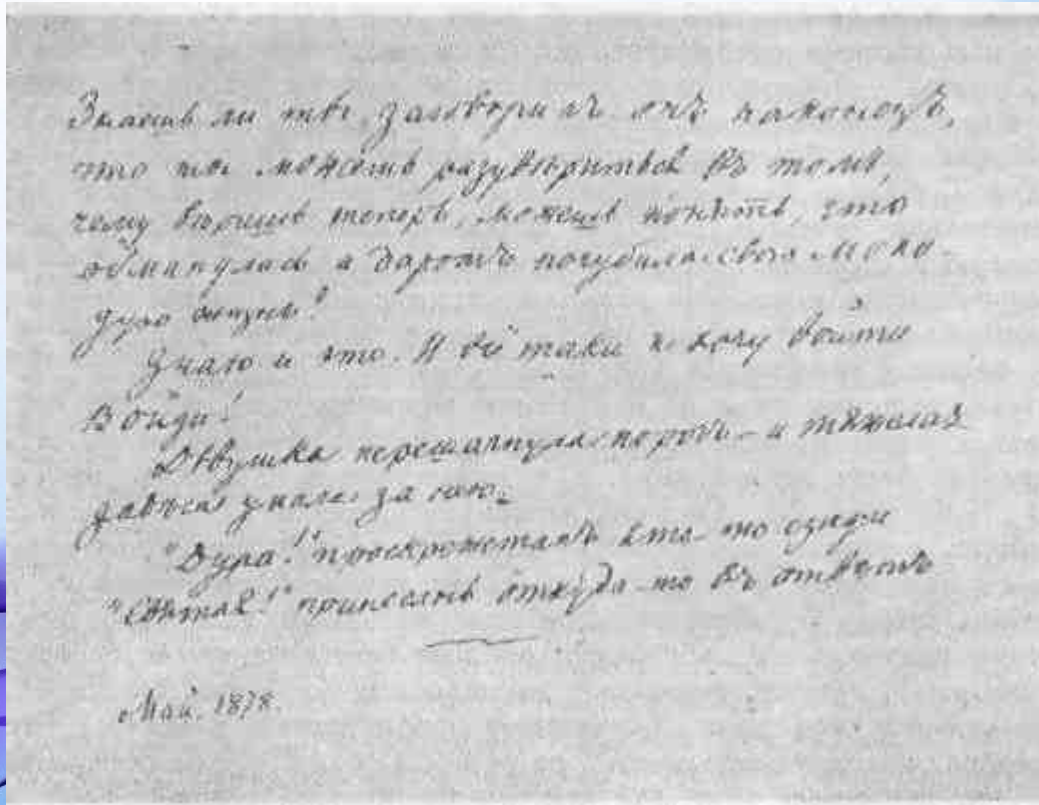 Знаешь ли ты, заговорилъ онъ наконецъ,
что ты можешь разувѣриться въ томъ,
чему вѣришь теперь, можешь понять, что
обманулась и даромъ погубила свою моло-
дую жизнь?
Знаю и это. И всё таки я хочу войти
Войди!
Дѣвушка перешагнула порогъ – и тяжелая
завѣса упала за нею.
"Дура!" проскрежеталъ кто-то сзади
"Святая!" принеслось откуда-то въ отвѣтъ
Май. 1878.